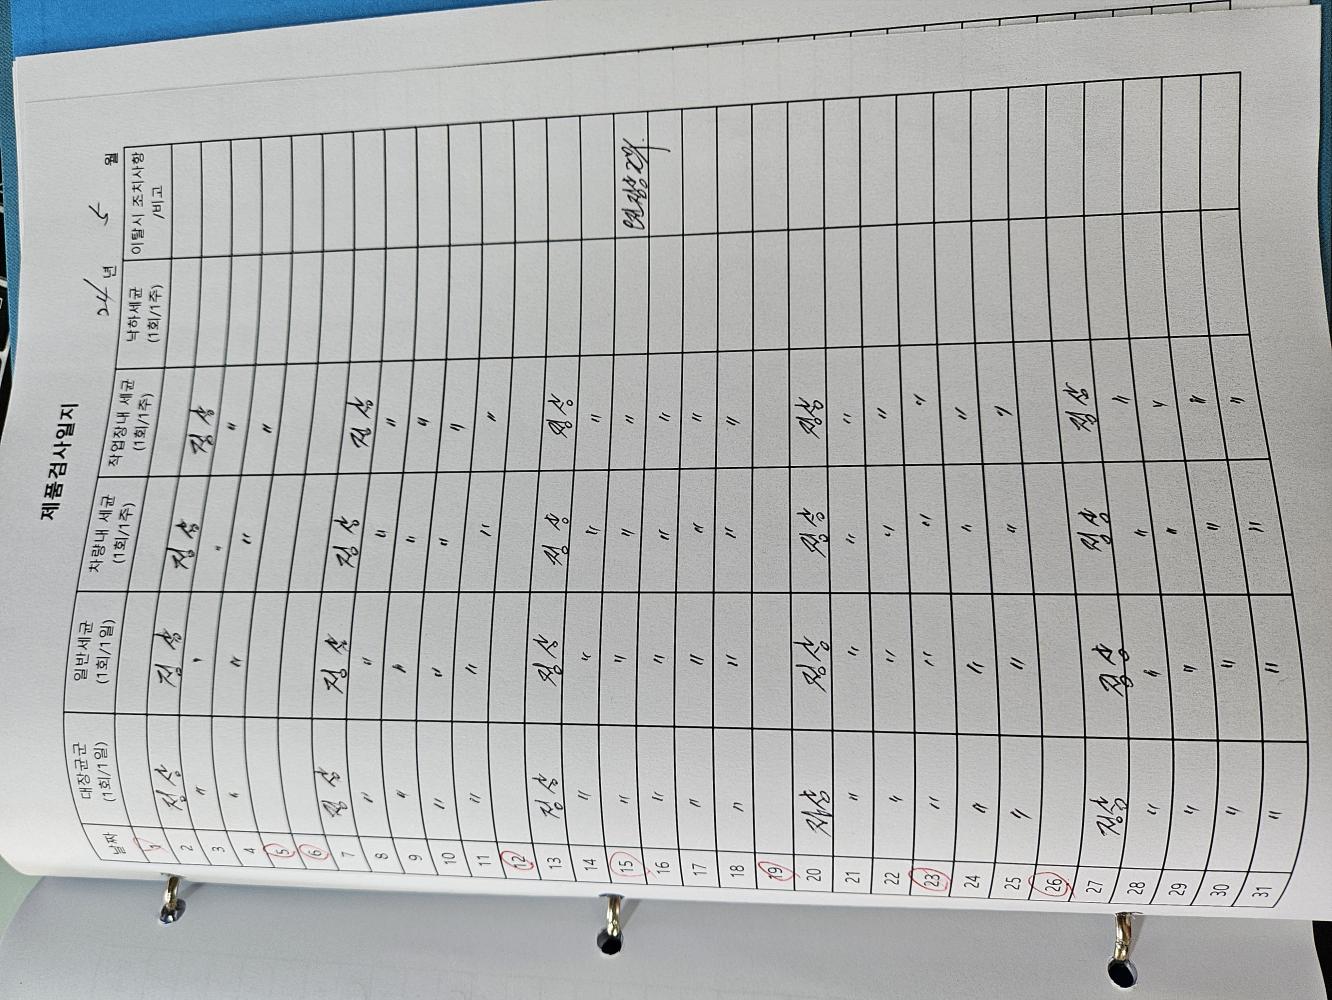 제품검사일지
24 년 5 월
날짜 대장균군 (1회/1일) 일반세균 (1회/1일) 차량내 세균 (1회/1주) 작업장내 세균 (1회/1주) 낙하세균 (1회/1주) 이탈시 조치사항 /비고
1
2 정상 정상 정상 정상
3 〃 〃 〃 〃
4 〃 〃 〃 〃
5
6
7 정상 정상 정상 정상
8 〃 〃 〃 〃
9 〃 〃 〃 〃
10 〃 〃 〃 〃
11 〃 〃 〃 〃
12
13 정상 정상 정상 정상
14 〃 〃 〃 〃
15 〃 〃 〃 〃
16 〃 〃 〃 〃
17 〃 〃 〃 〃
18 〃 〃 〃 〃
19
20 정상 정상 정상 정상
21 〃 〃 〃 〃
22 〃 〃 〃 〃
23 〃 〃 〃 〃
24 〃 〃 〃 〃
25 〃 〃 〃 〃
26
27 정상 정상 정상 정상
28 〃 〃 〃 〃
29 〃 〃 〃 〃
30 〃 〃 〃 〃
31 〃 〃 〃 〃